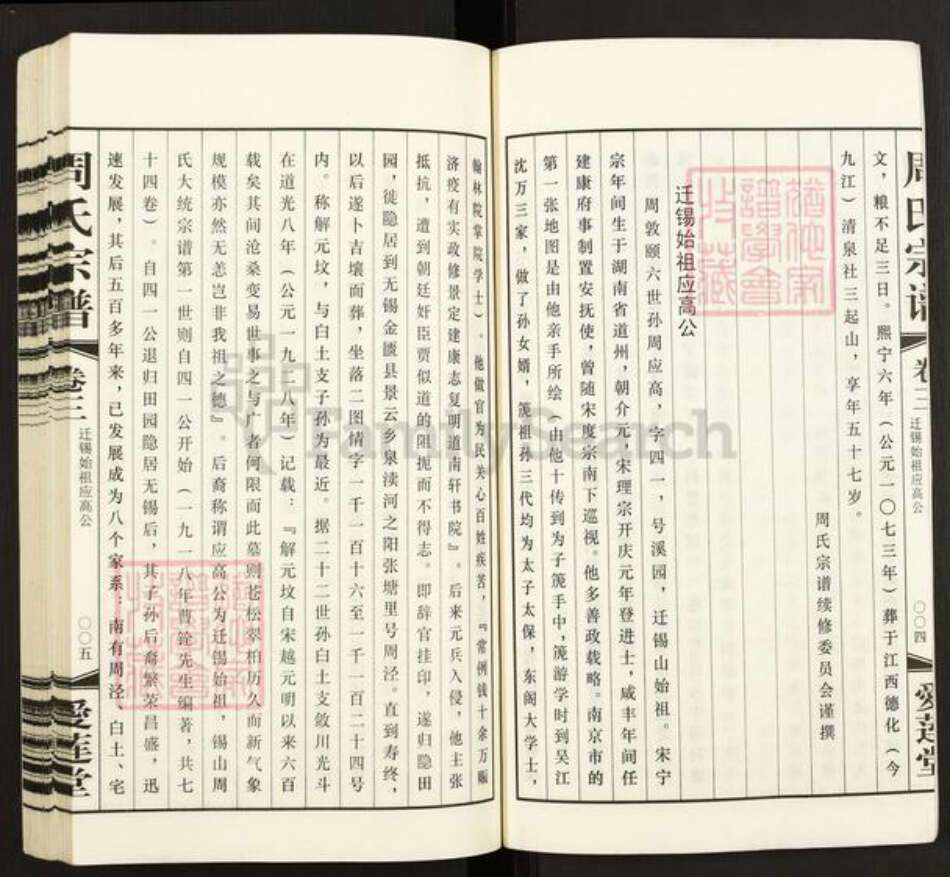 周氏宗谱
卷三
迁锡始祖应高公
〇〇四
爱莲堂
文，粮不足三日。熙宁六年（公元一〇七三年）葬于江西德化（今
九江）清泉社三起山，享年五十七岁。
周氏宗谱续修委员会谨撰
迁锡始祖应高公
周敦颐六世孙周应高，字四一，号溪园，迁锡山始祖。宋宁
宗年间生于湖南省道州，朝介元，宋理宗开庆元年登进士，咸丰年间任
建康府事制置安抚使，曾随宋度宗南下巡视。他多善政载略。南京市的
第一张地图是由他亲手所绘（由他十传到为子篪手中，篪游学时到吴江
沈万三家，做了孙女婿，篪祖孙三代均为太子太保，东阁大学士，
翰林院掌院学士）．他做官为民关心百姓疾苦，『常例钱十余万赈
济疫有实政修景定建康志复明道南轩书院』。后来元兵入侵，他主张
抵抗，遭到朝廷奸臣贾似道的阻扼而不得志。即辞官挂印，遂归隐田
园，徙隐居到无锡金匮县景云乡泉渎河之阳张塘里号周泾。直到寿终，
以后遂卜吉壤而葬，坐落二图情字一千一百十六至一千一百二十四号
内。称解元坟，与白土支子孙为最近。据二十二世孙白土支敛川光斗
在道光八年（公元一九二八年）记载：『解元坟自宋越元明以来六百
载矣其间沧桑变易世事之与广者何限而此墓则苍松翠柏历久而新气象
规模亦然无恙岂非我祖之德』．后裔称谓应高公为迁锡始祖，锡山周
氏大统宗谱第一世则自四一公开始（一九一八年曹铨先生编著，共七
十四卷）。自四一公退归田园隐居无锡后，其子孙后裔繁荣昌盛，迅
速发展，其后五百多年来，已发展成为八个家系：南有周泾、白土、宅
周氏宗谱
卷三
迁锡始祖应高公
〇〇五
爱莲堂
FamilySearch